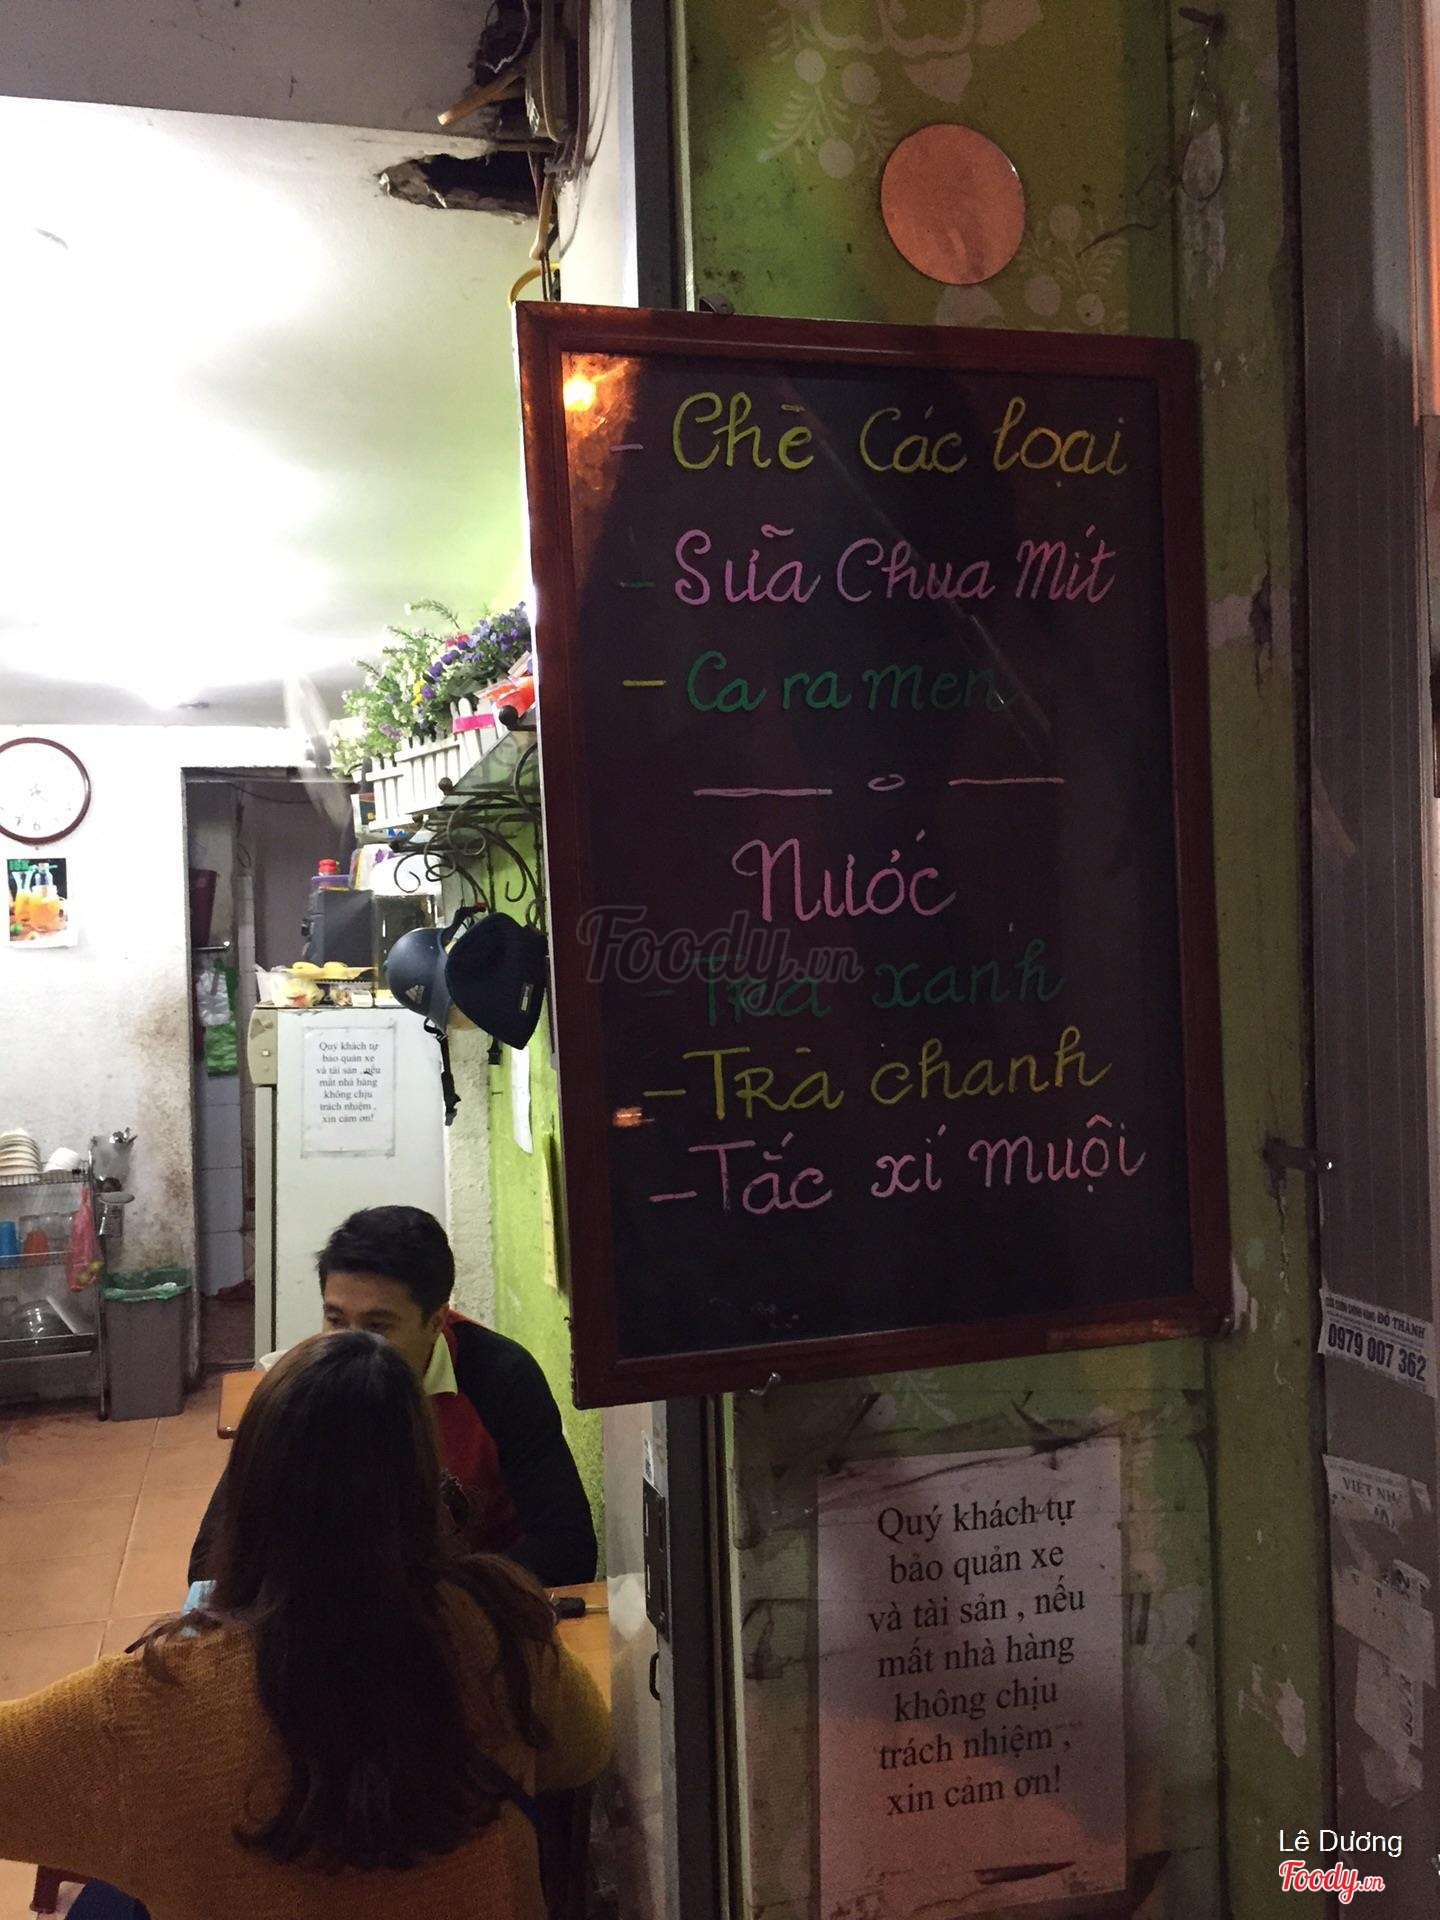 - Chè Các loại
- Sữa Chua Mít
- Ca ra men
Nước
- Trà xanh
- Trà chanh
- Tắc xí muội
Foody.vn
15K
Quý khách tự
bảo quản xe
và tài sản , nếu
mất nhà hàng
không chịu
trách nhiệm ,
xin cảm ơn!
ĐỖ THÀNH
0979 007 362
VIỆT NH
Quý khách tự
bảo quản xe
và tài sản , nếu
mất nhà hàng
không chịu
trách nhiệm ,
xin cảm ơn!
Lê Dương
Foody.vn